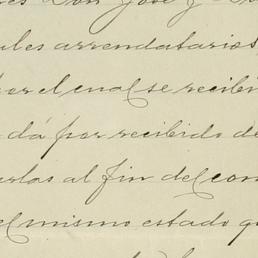 res Don José
ales arrendatarios
por el cual se recibi
dá por recibido de
arlas al fin del con
el mismo estado q